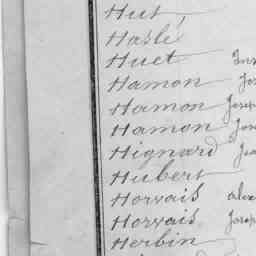 Hut
Haslé
Huet
Hamon
Hamon Josep
Hamon Jos
Hignard
Hubert
Horvais alex
Horvais Josep
Herbin